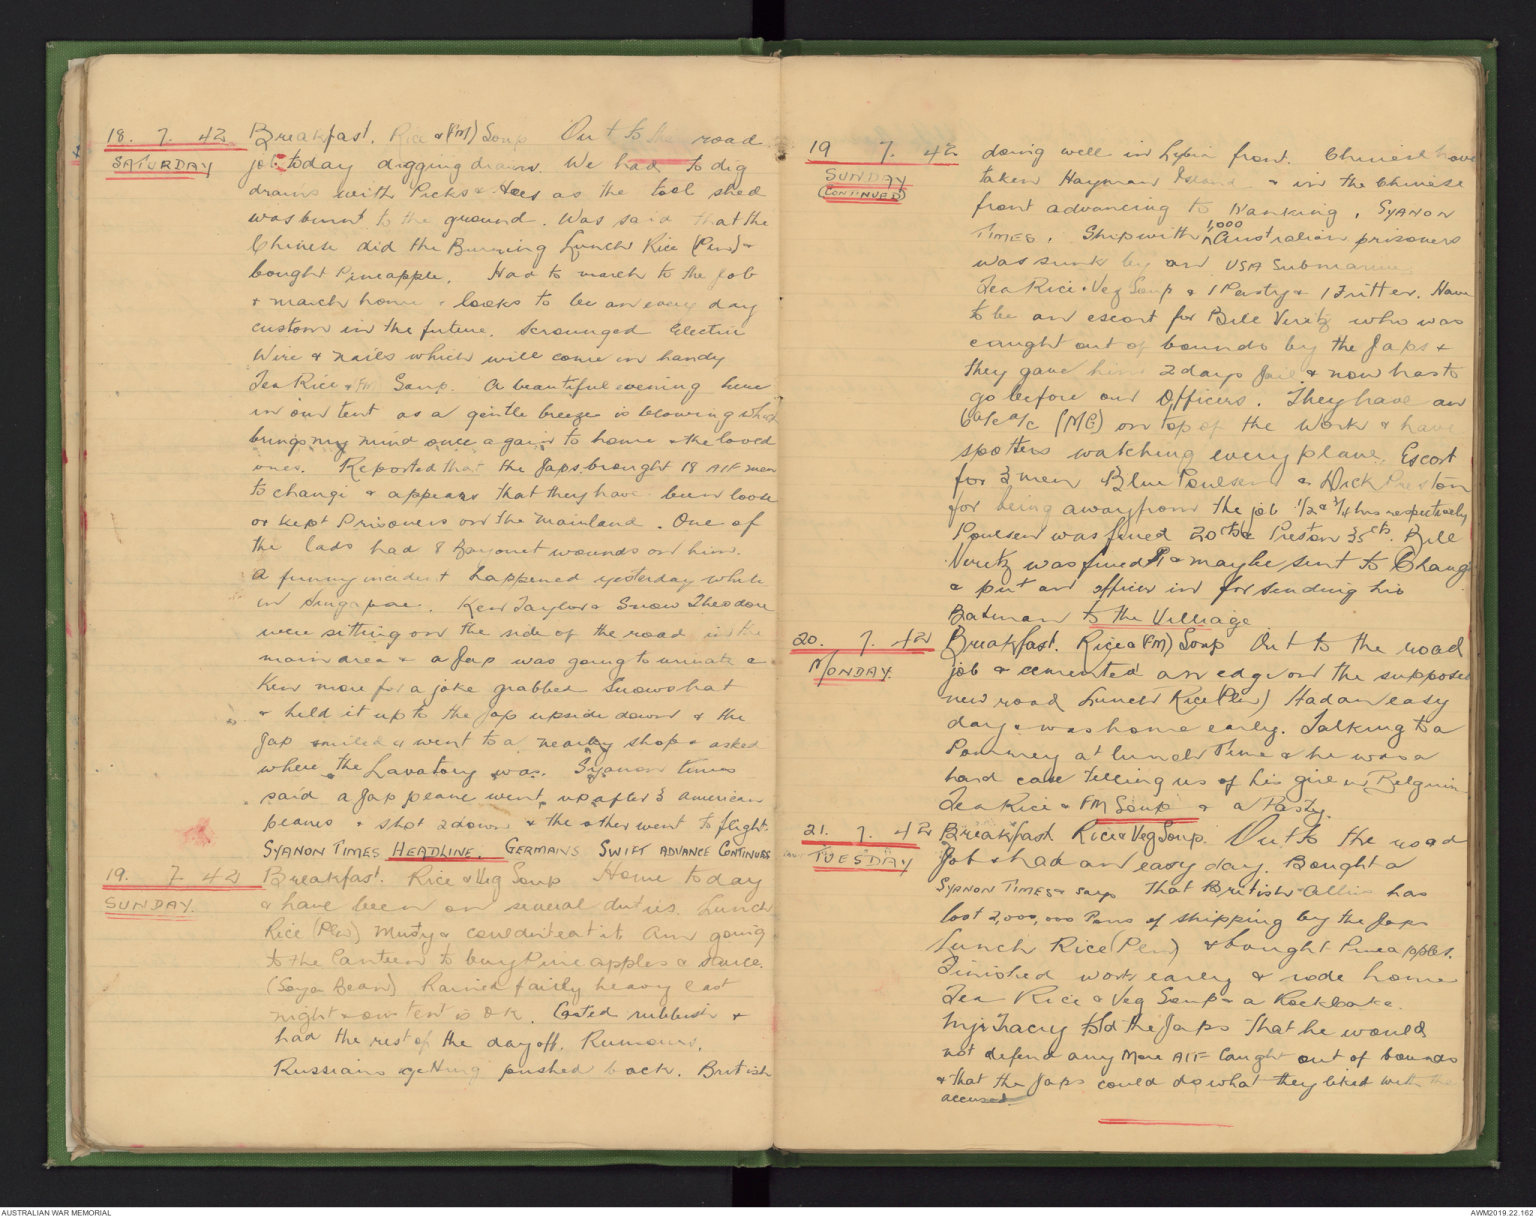 18. 7. 42 Breakfast. Rice & (FM) Soup Out to the road
SATURDAY job today digging drains. We had to dig
drains with Picks & Hoes as the tool shed
was burnt to the ground. Was said that the
Chinese did the Burning Lunch Rice (Pln) &
bought Pineapple. Had to march to the job
& march home & looks to be an every day
custom in the future. Scrounged Electric
Wire & nails which will come in handy
Tea Rice & FM Soup. A beautiful evening here
in our tent as a gentle breeze is blowing which
brings my mind once again to home & the loved
ones. Reported that the Japs brought 18 AIF men
to Changi & appears that they have been loose
or kept Prisoners on the mainland. One of
the lads had 8 Bayonet wounds on him.
A funny incident happened yesterday while
in Singapore. Ken Taylor & Snow Theodore
were sitting on the side of the road in the
main area & a Jap was going to urinate &
Ken more for a joke grabbed Snows hat
& held it up to the Jap upside down & the
Jap smiled & went to a nearby shop & asked
where the Lavatory was. Syanon times
said a Jap plane went up after 3 American
planes & shot 2 down & the other went to flight.
SYANON TIMES HEADLINE. GERMANS SWIFT ADVANCE CONTINUES
19. 7. 42 Breakfast. Rice & Veg Soup Home today
SUNDAY. & have been on several duties. Lunch
Rice (Pln) Musty & couldn't eat it Am going
to the Canteen to buy Pineapples & sauce.
(Soya Bean) Rained fairly heavy last
night & our tent is OK. Carted rubbish &
had the rest of the day off. Rumours.
Russians getting pushed back. British
19 7. 42 doing well in Lybia front. Chinese have
SUNDAY taken Hayman Island & in the Chinese
(CONTINUED) front advancing to Nanking. SYANON
TIMES. Ship with 1,000 Australian prisoners
was sunk by an USA Submarine.
Tea Rice & Veg Soup & 1 Pasty & 1 Fritter. Have
to be an escort for Bill Veritz who was
caught out of bounds by the Japs &
they gave him 2 days Jail & now has to
go before our Officers. They have an
a/c (MG) on top of the Work & have
spotters watching every plane. Escort
for 3 men Blue Poulsen & Dick Preston
for being away from the job 1/2 & 3/4 hrs respectively
Poulsen was fined 20cts & Preston 35cts. Bill
Veritz was fined $1 & maybe sent to Changi
& put an officer in for sending his
Batman to the Village
20. 7. 42 Breakfast. Rice & (FM) Soup Out to the road
MONDAY. job & cemented an edge on the supposed
new road Lunch Rice (Pln) Had an easy
day & was home early. Talking to a
Pommey at lunch time & he was a
hard case telling us of his girl in Belguim
Tea Rice & FM Soup & a Pasty.
21. 7. 42 Breakfast Rice & Veg Soup. Out to the road
TUESDAY Job & had an easy day. Bought a
SYANON TIMES & says that British Allies has
lost 2,000,000 Tons of shipping by the Japs
Lunch Rice (Pln) & bought Pineapples.
Finished work early & rode home
Tea Rice & Veg Soup & a Rockcake.
Mjr Tracey told the Japs that he would
not defend any More AIF Caught out of bounds
& that the Japs could do what they liked with the
accused
AUSTRALIAN WAR MEMORIAL
AWM2019.22.162